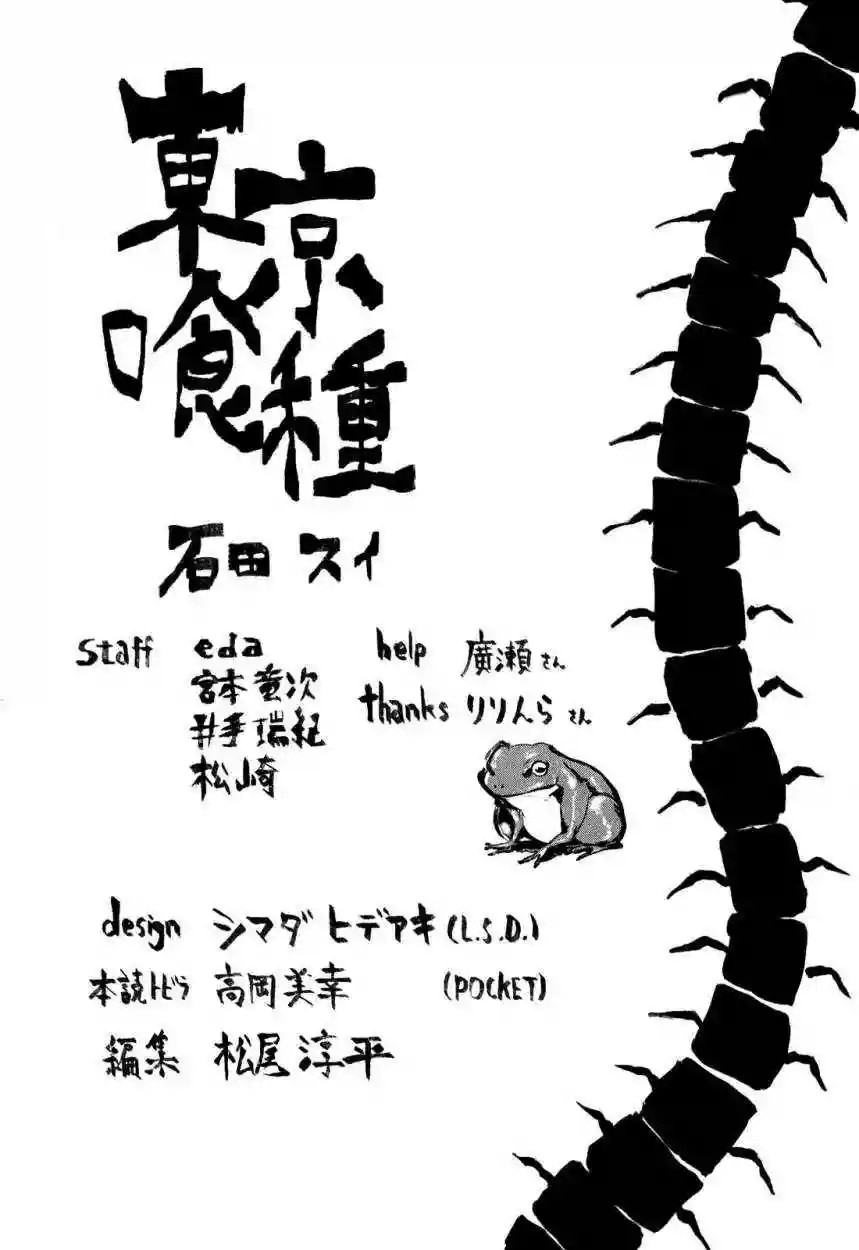 東京
喰種
石田スイ
staff eda
宮本竜次
井手瑞紀
松崎
help 廣瀬さん
thanks りりんらさん
design シマダヒデアキ(L.S.D.)
本読トビラ 高岡美幸 (POCKET)
編集 松尾淳平